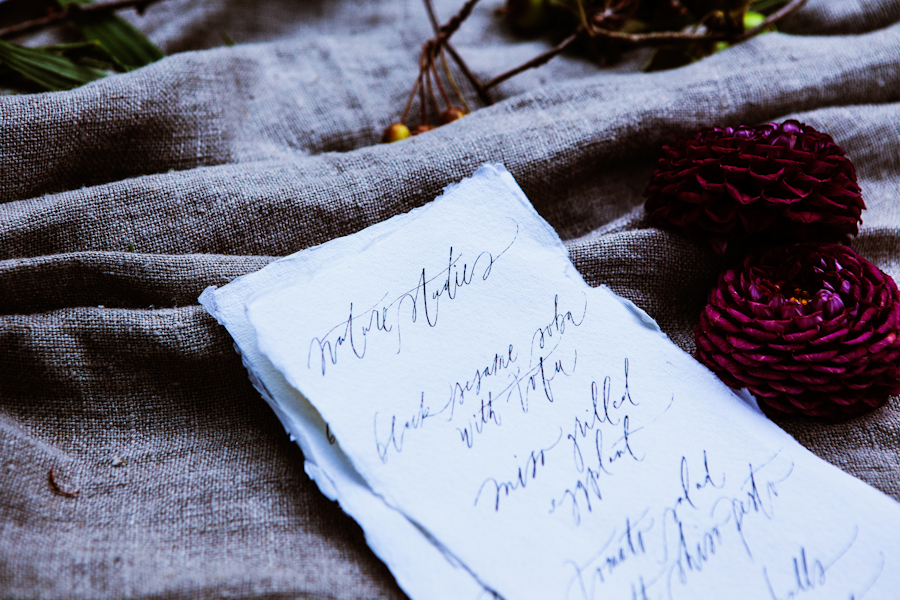 nature studies
black sesame soba
with tofu
miso grilled
eggplant
tomato salad
shiso pesto